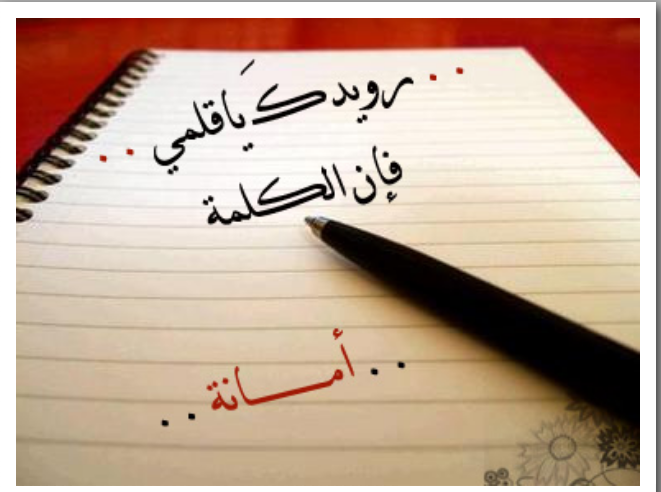 .. رويدك يَاقلمي ..
فإن الكلمة
.. أمـــانة ..